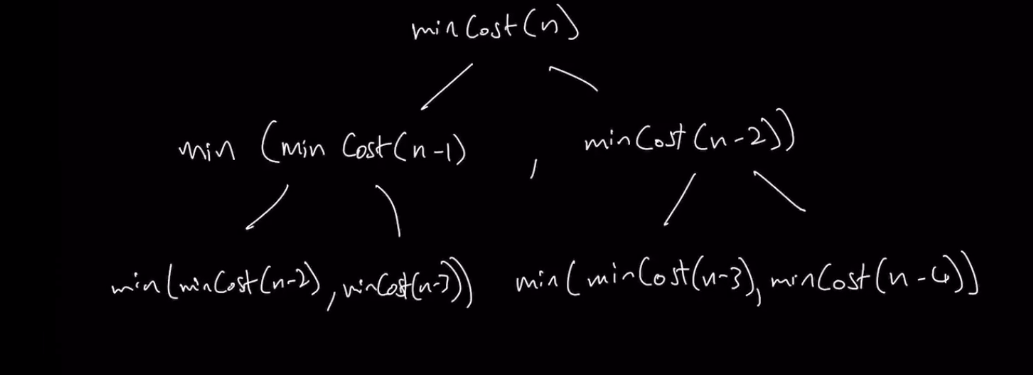 minCost(n)
min (min Cost(n-1) , minCost(n-2))
min(minCost(n-2), minCost(n-3)) min(minCost(n-3), minCost(n-4))